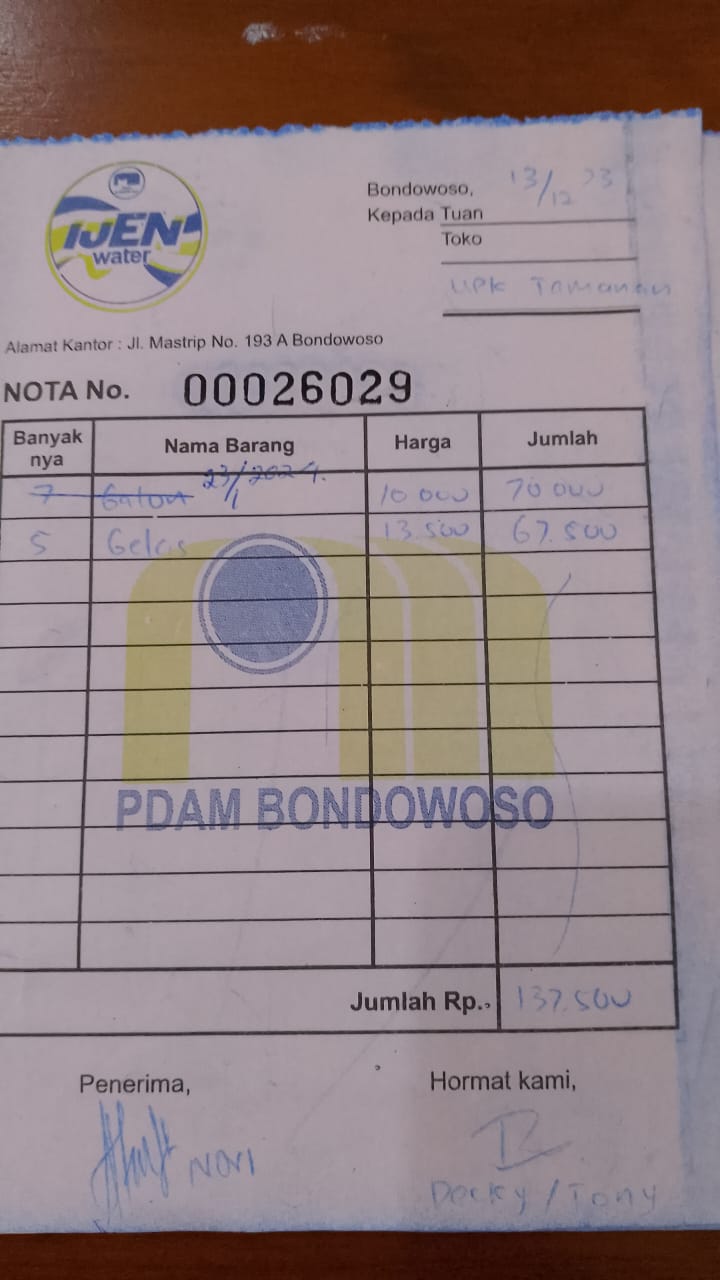 IJEN
water
Bondowoso, 13/12 23
Kepada Tuan
Toko
UPK Tamanan
Alamat Kantor : Jl. Mastrip No. 193 A Bondowoso
NOTA No. 00026029
Banyak nya Nama Barang Harga Jumlah
7 Galon 23/1 2024. 10 000 70 000
5 Gelas 13.500 67.500
PDAM BONDOWOSO
Jumlah Rp. 137.500
Penerima, Hormat kami,
NOVI
Decky / Tony